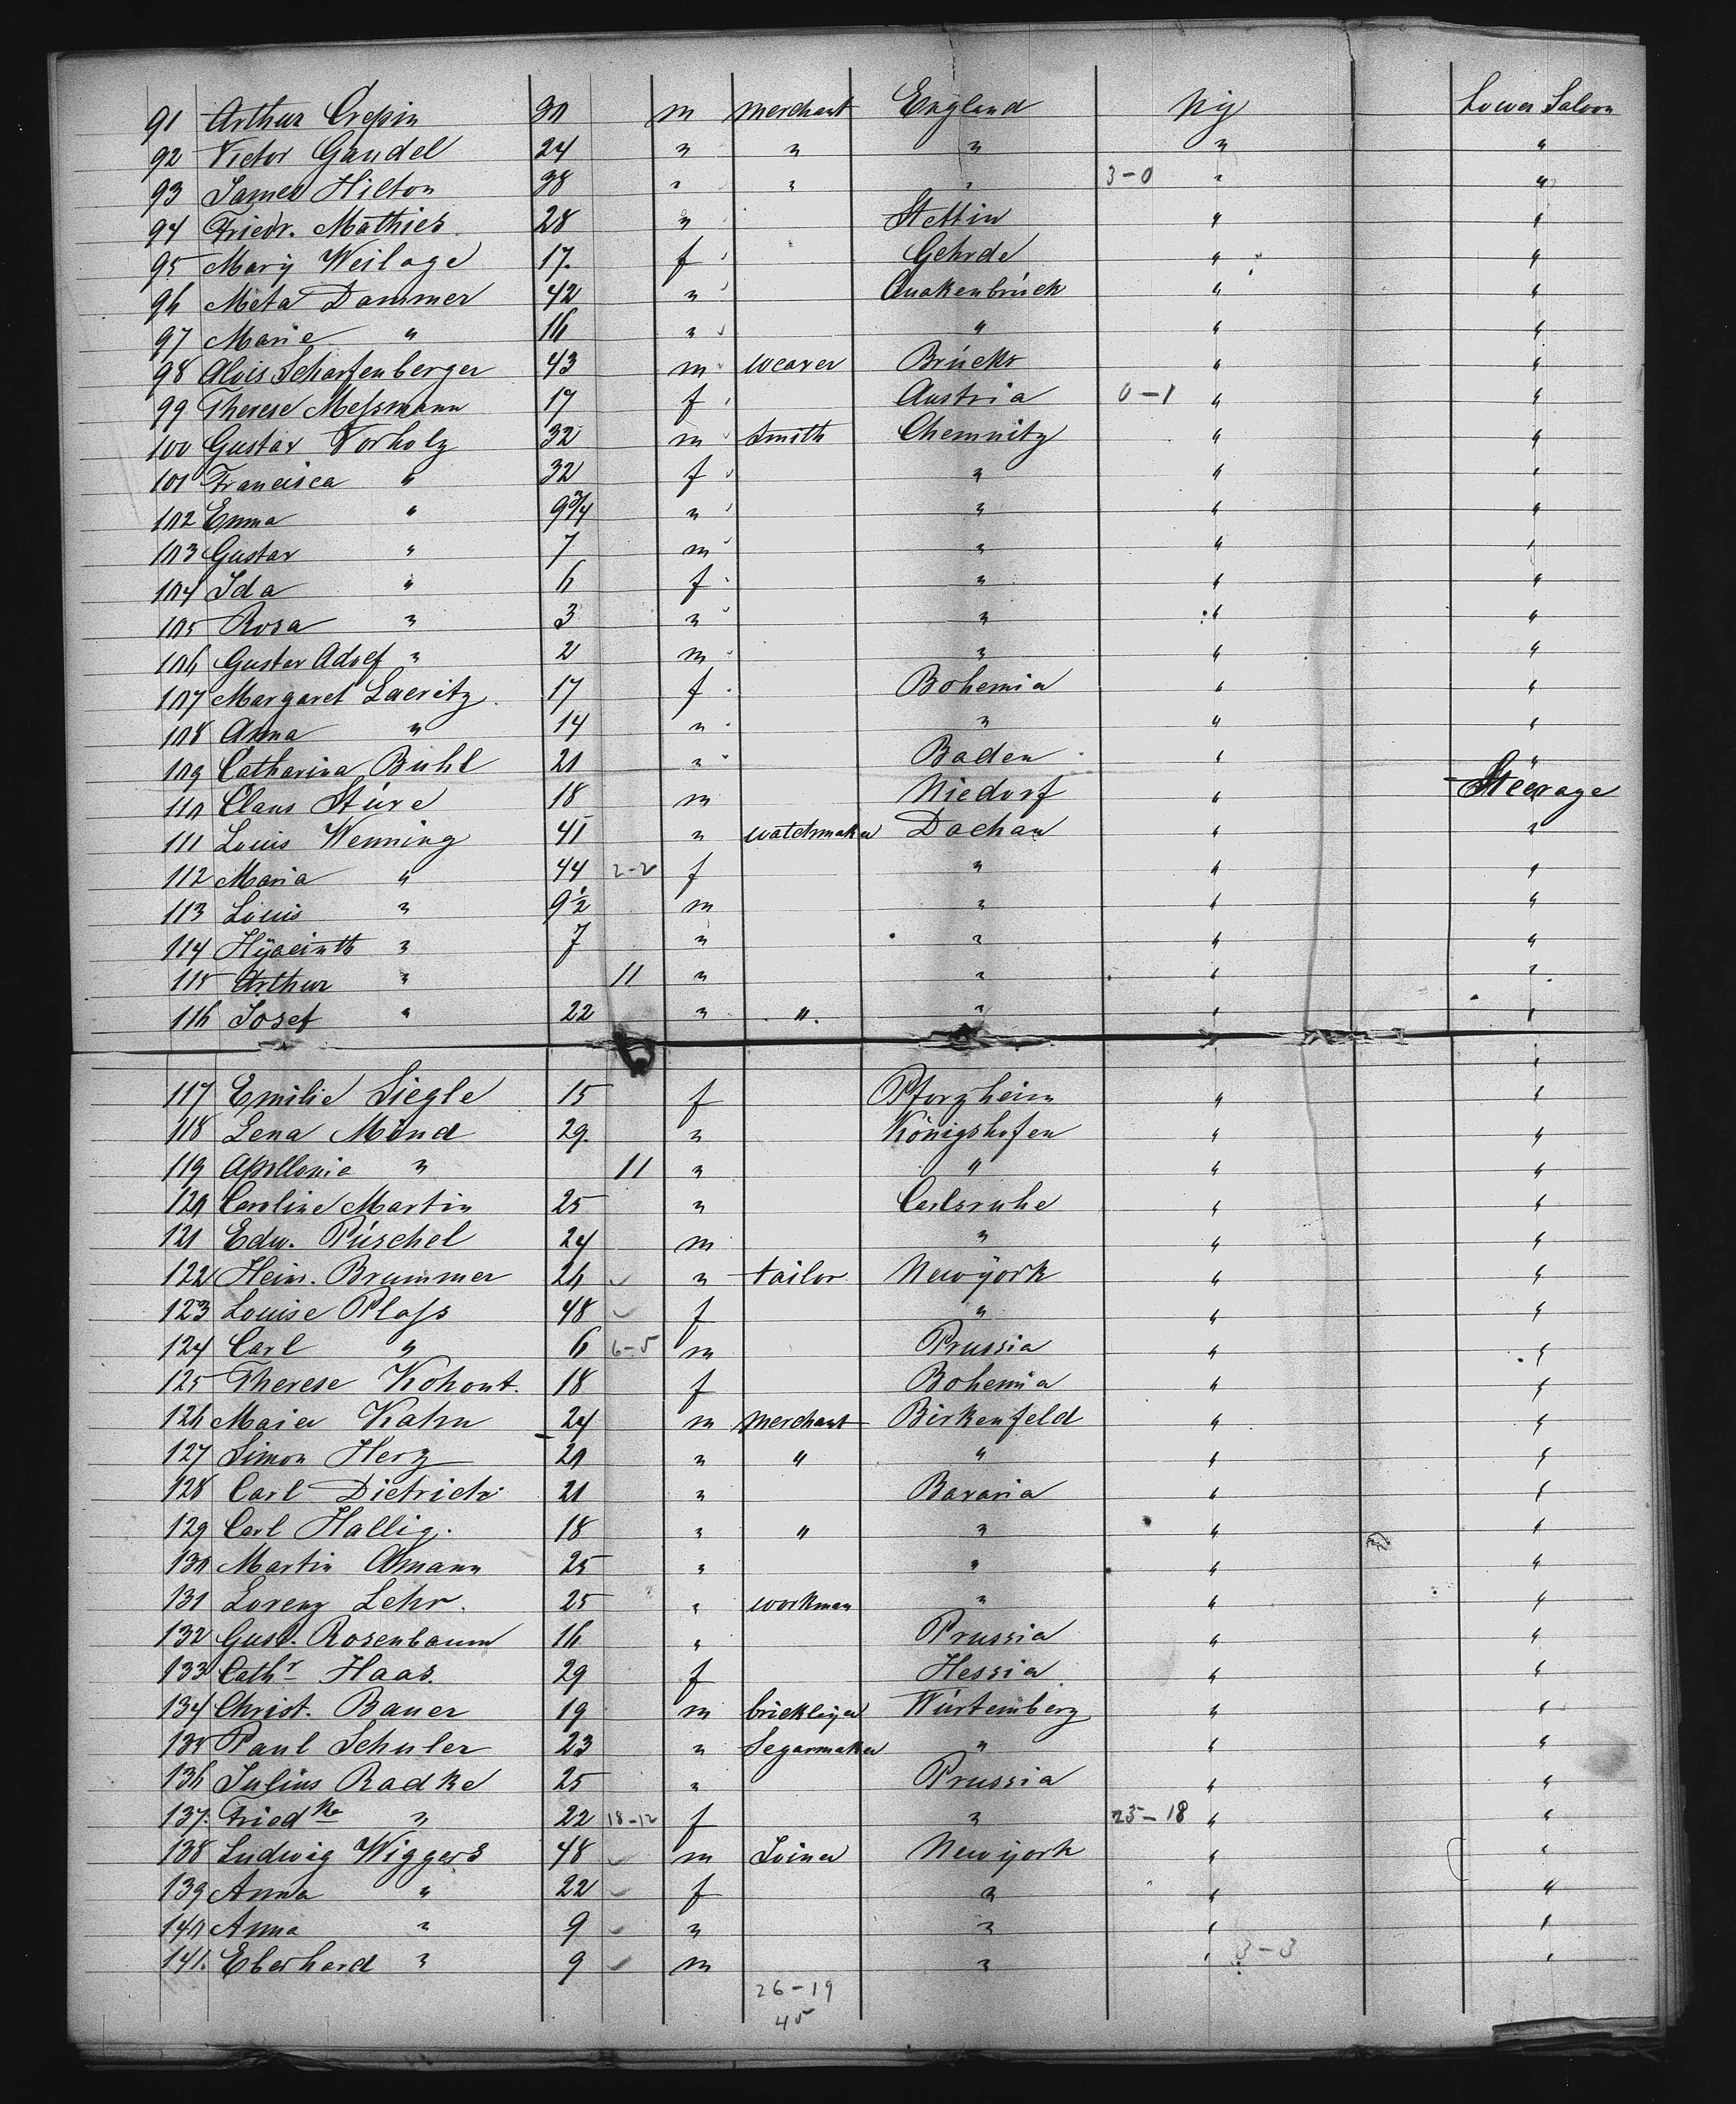 91 Arthur Crepin 30 m merchant England Ny Lower Saloon
92 Victor Gaudel 24 " " " " "
93 James Hilton 38 " " " 3-0 " "
94 Friedr. Mathies 28 " Stettin " "
95 Mary Weilage 17. f Gehrde " "
96 Meta Dammer 42 " Quakenbrück " "
97 Marie " 16 " " " "
98 Alois Scharfenberger 43 m weaver Brücks " "
99 Therese Messmann 17 f Austria 0-1 " "
100 Gustav Vorholz 32 m Smith Chemnitz " "
101 Francisca " 32 f " " "
102 Emma " 9 3/4 " " " "
103 Gustav " 7 m " " "
104 Ida " 6 f " " "
105 Rosa " 3 " " " "
106 Gustav Adolf " 2 m " " "
107 Margaret Laeritz 17 f Bohemia " "
108 Anna " 14 " " " "
109 Catharina Buhl 21 " Baden " "
110 Claus Stüre 18 m Niedorf " Steerage
111 Louis Wenning 41 " watchmaker Dachau " "
112 Maria " 44 2-2 f " " "
113 Louis " 9 1/2 m " " "
114 Hyacinth " 7 " " " "
115 Arthur " 11 " " " "
116 Josef " 22 " " " " "
117 Emilie Siegle 15 f Pforzheim " "
118 Lena Mönd 29. " Königshofen " "
119 Apollonia " 11 " " " "
120 Caroline Martin 25 " Carlsruhe " "
121 Edw. Püschel 24 m " " "
122 Heinr. Brummer 26 " tailor Newyork " "
123 Louise Plass 48 f " " "
124 Carl " 6 6-5 m Prussia " "
125 Therese Kohout. 18 f Bohemia " "
126 Maier Kahn 24 m merchant Birkenfeld " "
127 Simon Herz 20 " " " " "
128 Carl Dietrich 21 " Bavaria " "
129 Carl Hallig. 18 " " " " "
130 Martin Amann 25 " " " "
131 Lorenz Lehr. 25 " workman " " "
132 Gust. Rosenbaum 16 " Prussia " "
133 Cathr Haas. 29 f Hessia " "
134 Christ. Bauer 19 m bricklayer Würtemberg " "
135 Paul Schuler 23 " Segarmaker " " "
136 Julius Radke 25 " Prussia " "
137. Friedke " 22 18-12 f " 25-18 " "
138 Ludwig Wiggers 48 m Joiner Newyork " "
139 Anna " 22 f " " "
140 Anna " 9 " " " "
141. Eberhard " 9 m " " 3-3 "
26-19
45